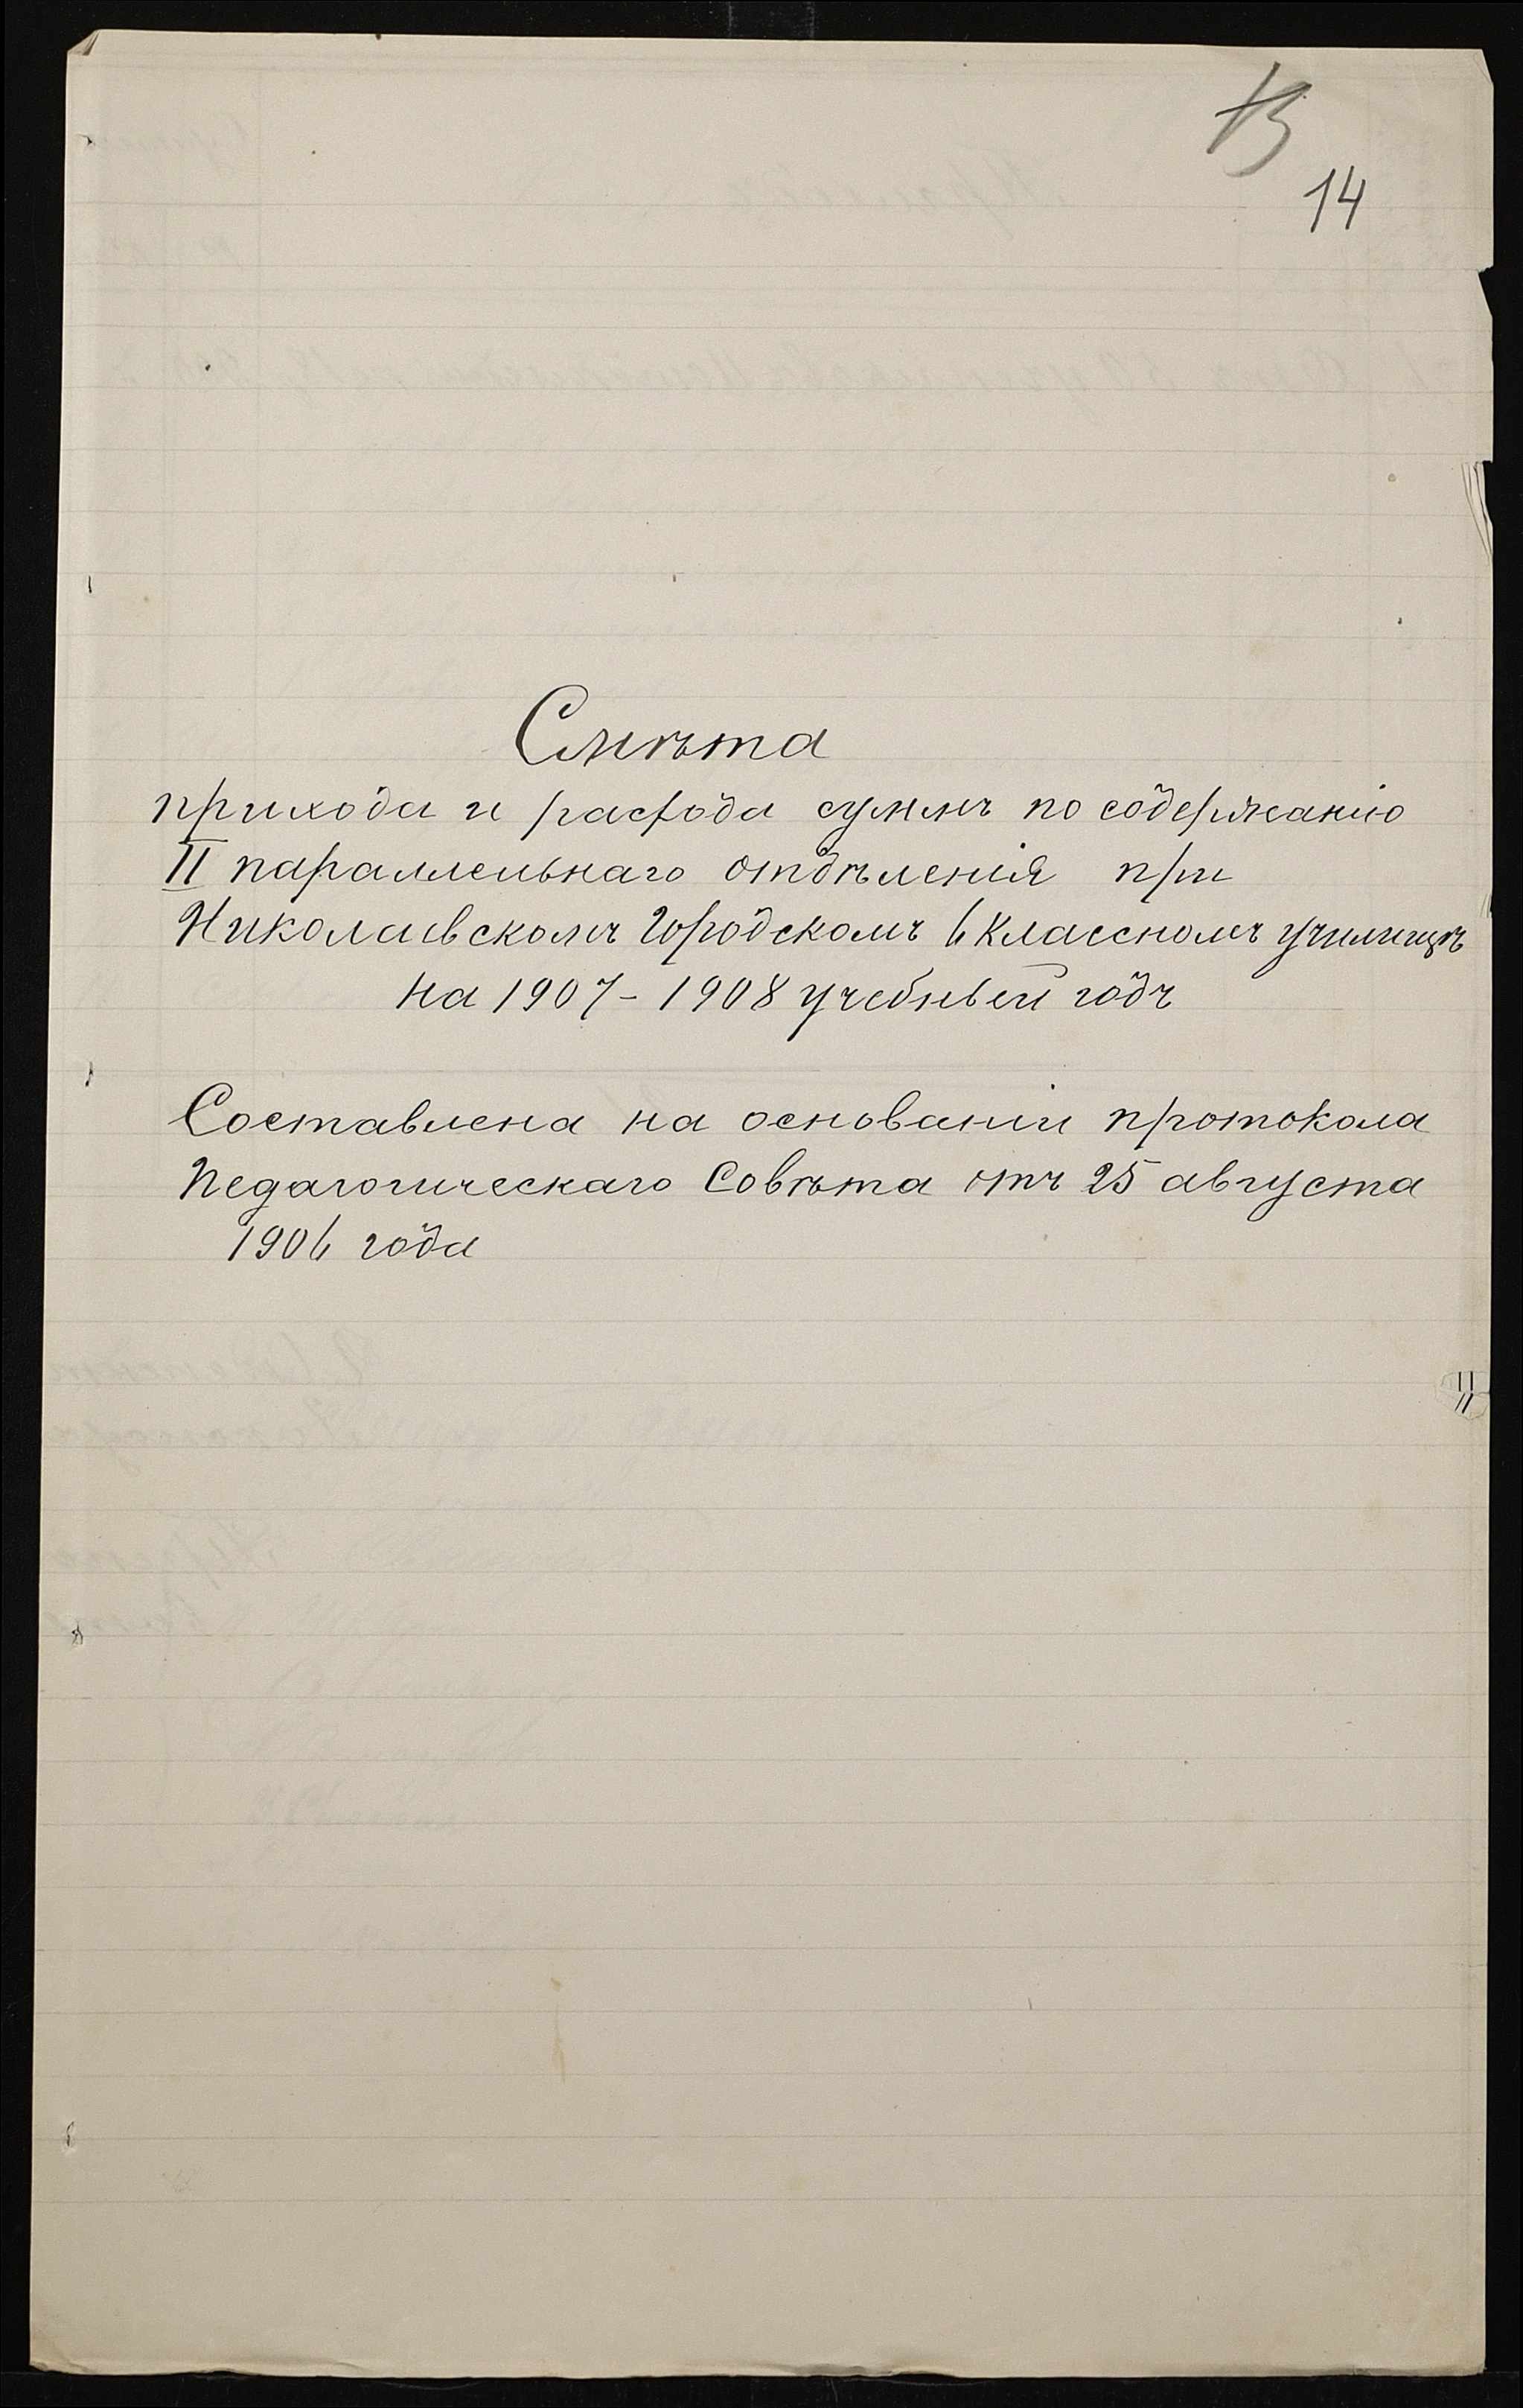 13
14
Смѣта
прихода и расхода суммъ по содержанію
II параллельнаго отдѣленія при
Николаевскомъ Городскомъ 6 классномъ училищѣ
на 1907-1908 учебный годъ
Составлена на основаніи протокола
Педагогическаго Совѣта отъ 25 августа
1906 года